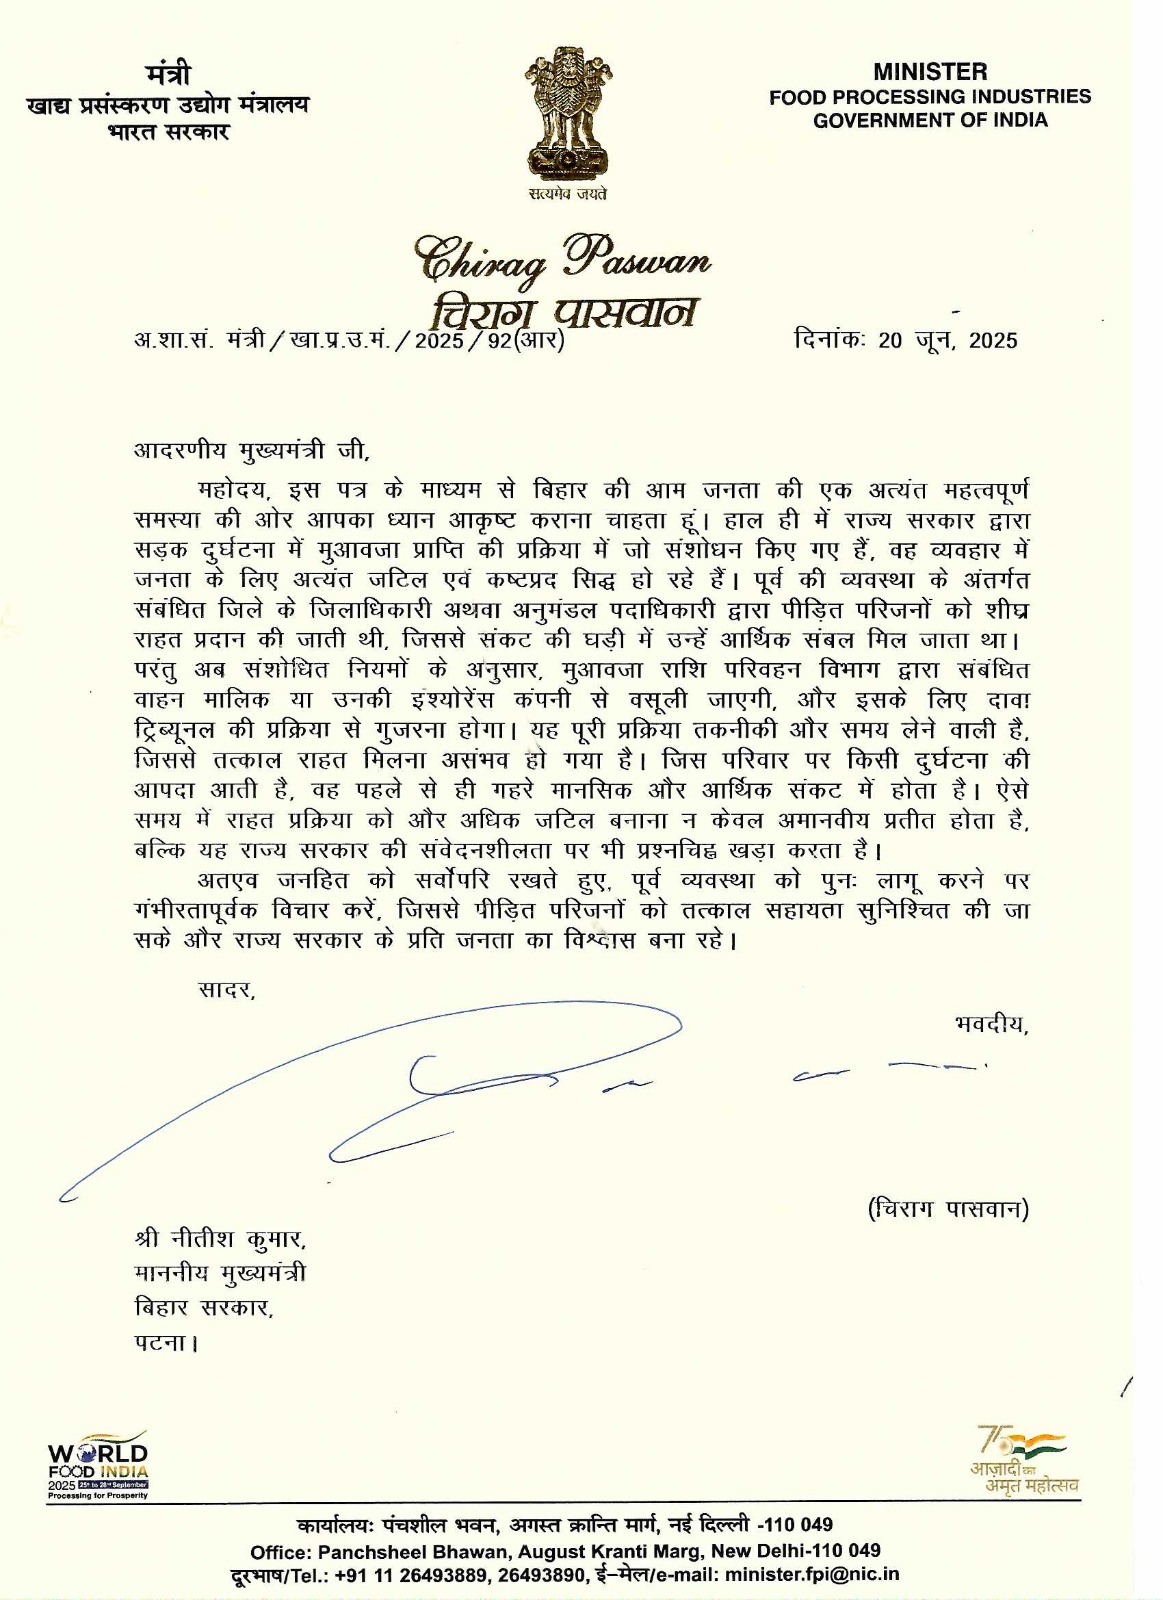 मंत्री
खाद्य प्रसंस्करण उद्योग मंत्रालय
भारत सरकार
सत्यमेव जयते
MINISTER
FOOD PROCESSING INDUSTRIES
GOVERNMENT OF INDIA
Chirag Paswan
चिराग पासवान
अ.शा.सं. मंत्री/खा.प्र.उ.मं./2025/92(आर)
दिनांकः 20 जून, 2025
आदरणीय मुख्यमंत्री जी,
महोदय, इस पत्र के माध्यम से बिहार की आम जनता की एक अत्यंत महत्वपूर्ण
समस्या की ओर आपका ध्यान आकृष्ट कराना चाहता हूं। हाल ही में राज्य सरकार द्वारा
सड़क दुर्घटना में मुआवजा प्राप्ति की प्रक्रिया में जो संशोधन किए गए हैं, वह व्यवहार में
जनता के लिए अत्यंत जटिल एवं कष्टप्रद सिद्ध हो रहे हैं। पूर्व की व्यवस्था के अंतर्गत
संबंधित जिले के जिलाधिकारी अथवा अनुमंडल पदाधिकारी द्वारा पीड़ित परिजनों को शीघ्र
राहत प्रदान की जाती थी, जिससे संकट की घड़ी में उन्हें आर्थिक संबल मिल जाता था।
परंतु अब संशोधित नियमों के अनुसार, मुआवजा राशि परिवहन विभाग द्वारा संबंधित
वाहन मालिक या उनकी इंश्योरेंस कंपनी से वसूली जाएगी, और इसके लिए दावा
ट्रिब्यूनल की प्रक्रिया से गुजरना होगा। यह पूरी प्रक्रिया तकनीकी और समय लेने वाली है,
जिससे तत्काल राहत मिलना असंभव हो गया है। जिस परिवार पर किसी दुर्घटना की
आपदा आती है, वह पहले से ही गहरे मानसिक और आर्थिक संकट में होता है। ऐसे
समय में राहत प्रक्रिया को और अधिक जटिल बनाना न केवल अमानवीय प्रतीत होता है,
बल्कि यह राज्य सरकार की संवेदनशीलता पर भी प्रश्नचिह्न खड़ा करता है।
अतएव जनहित को सर्वोपरि रखते हुए, पूर्व व्यवस्था को पुनः लागू करने पर
गंभीरतापूर्वक विचार करें, जिससे पीड़ित परिजनों को तत्काल सहायता सुनिश्चित की जा
सके और राज्य सरकार के प्रति जनता का विश्वास बना रहे।
सादर,
भवदीय,
(चिराग पासवान)
श्री नीतीश कुमार,
माननीय मुख्यमंत्री
बिहार सरकार,
पटना।
WORLD
FOOD INDIA
2025 25th to 28th September
Processing for Prosperity
75
आज़ादी का
अमृत महोत्सव
कार्यालयः पंचशील भवन, अगस्त क्रान्ति मार्ग, नई दिल्ली -110 049
Office: Panchsheel Bhawan, August Kranti Marg, New Delhi-110 049
दूरभाष/Tel.: +91 11 26493889, 26493890, ई-मेल/e-mail: minister.fpi@nic.in